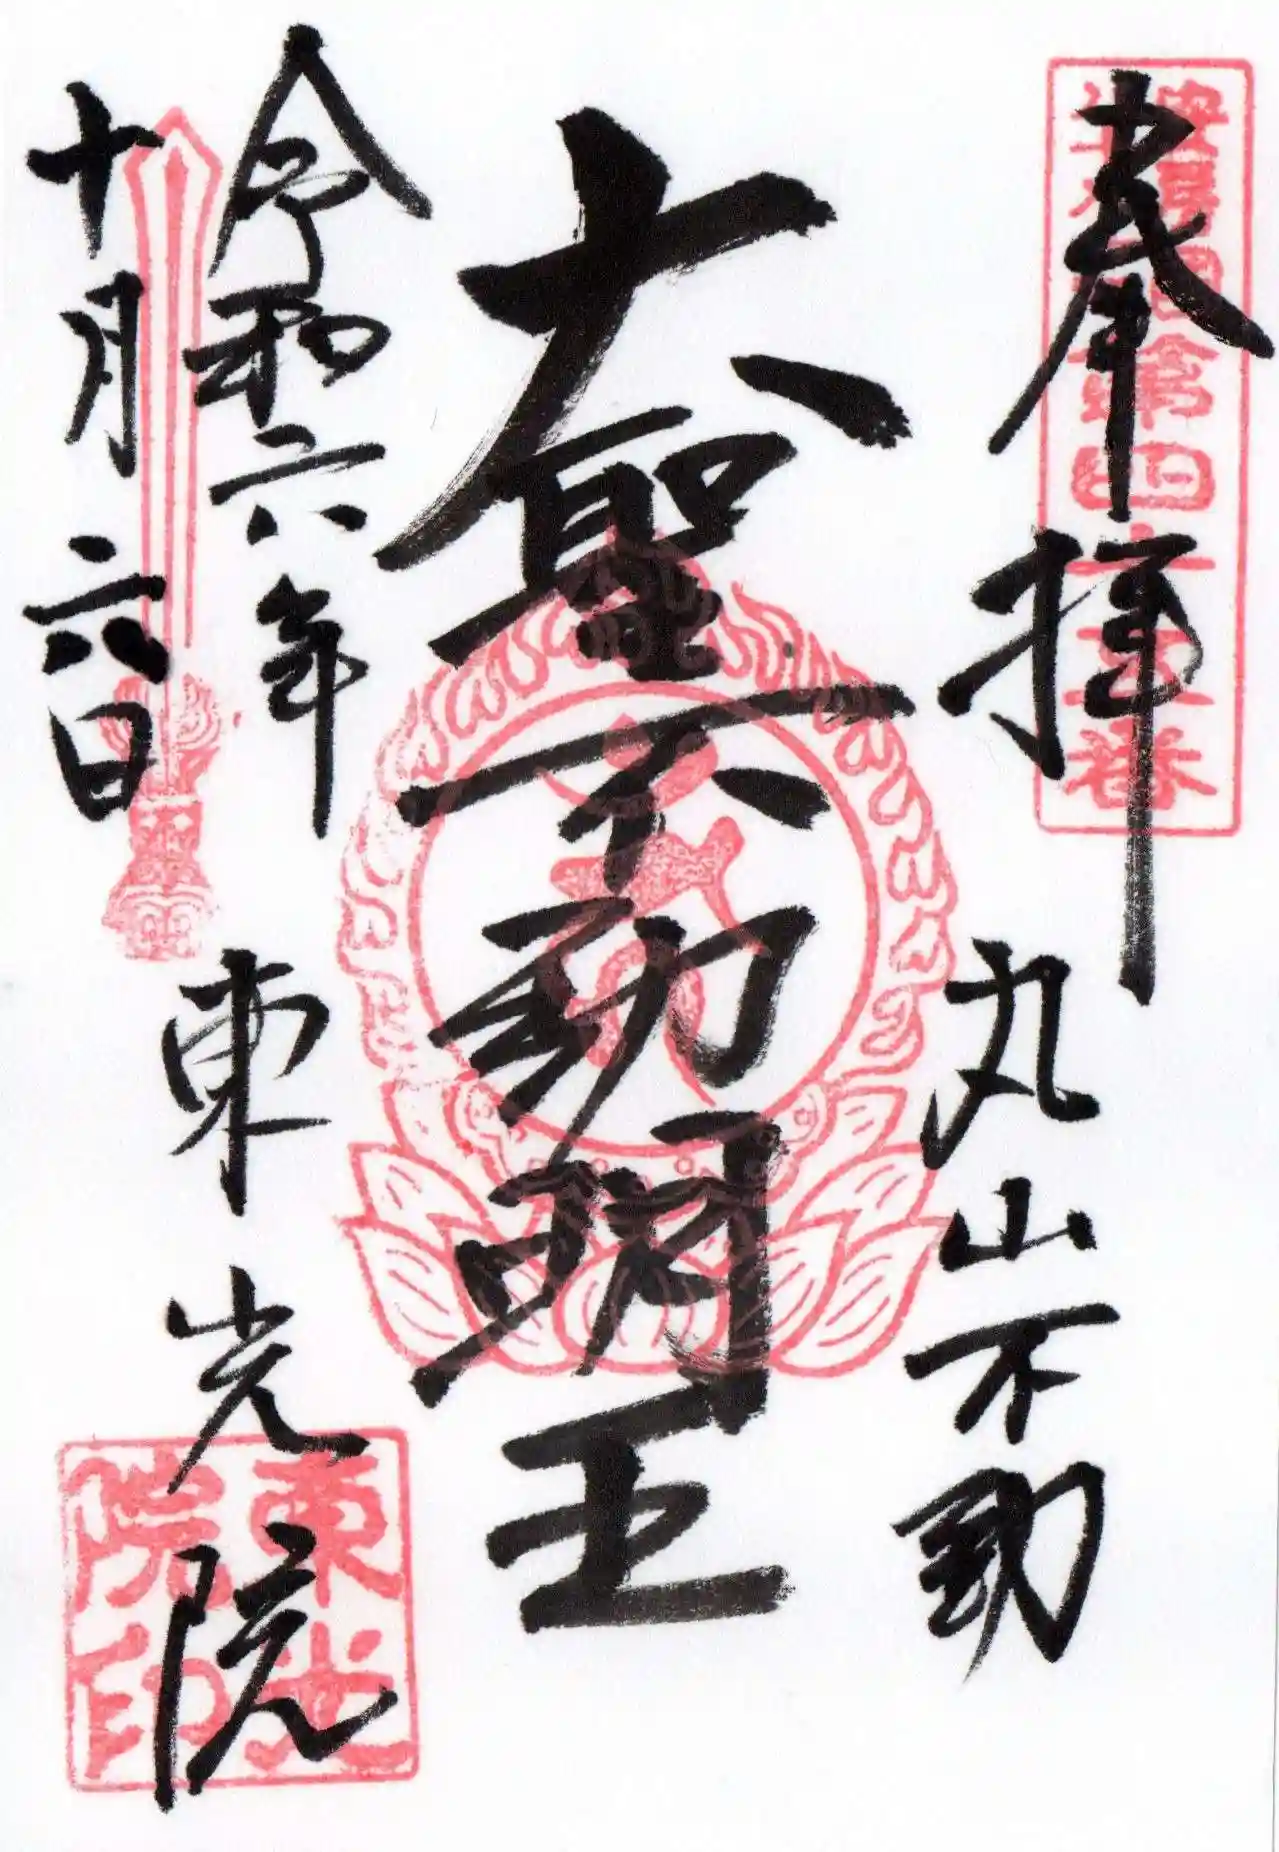 奉拝
丸山不動
大聖不動明王
令和六年
十月六日
東光院
東光院印